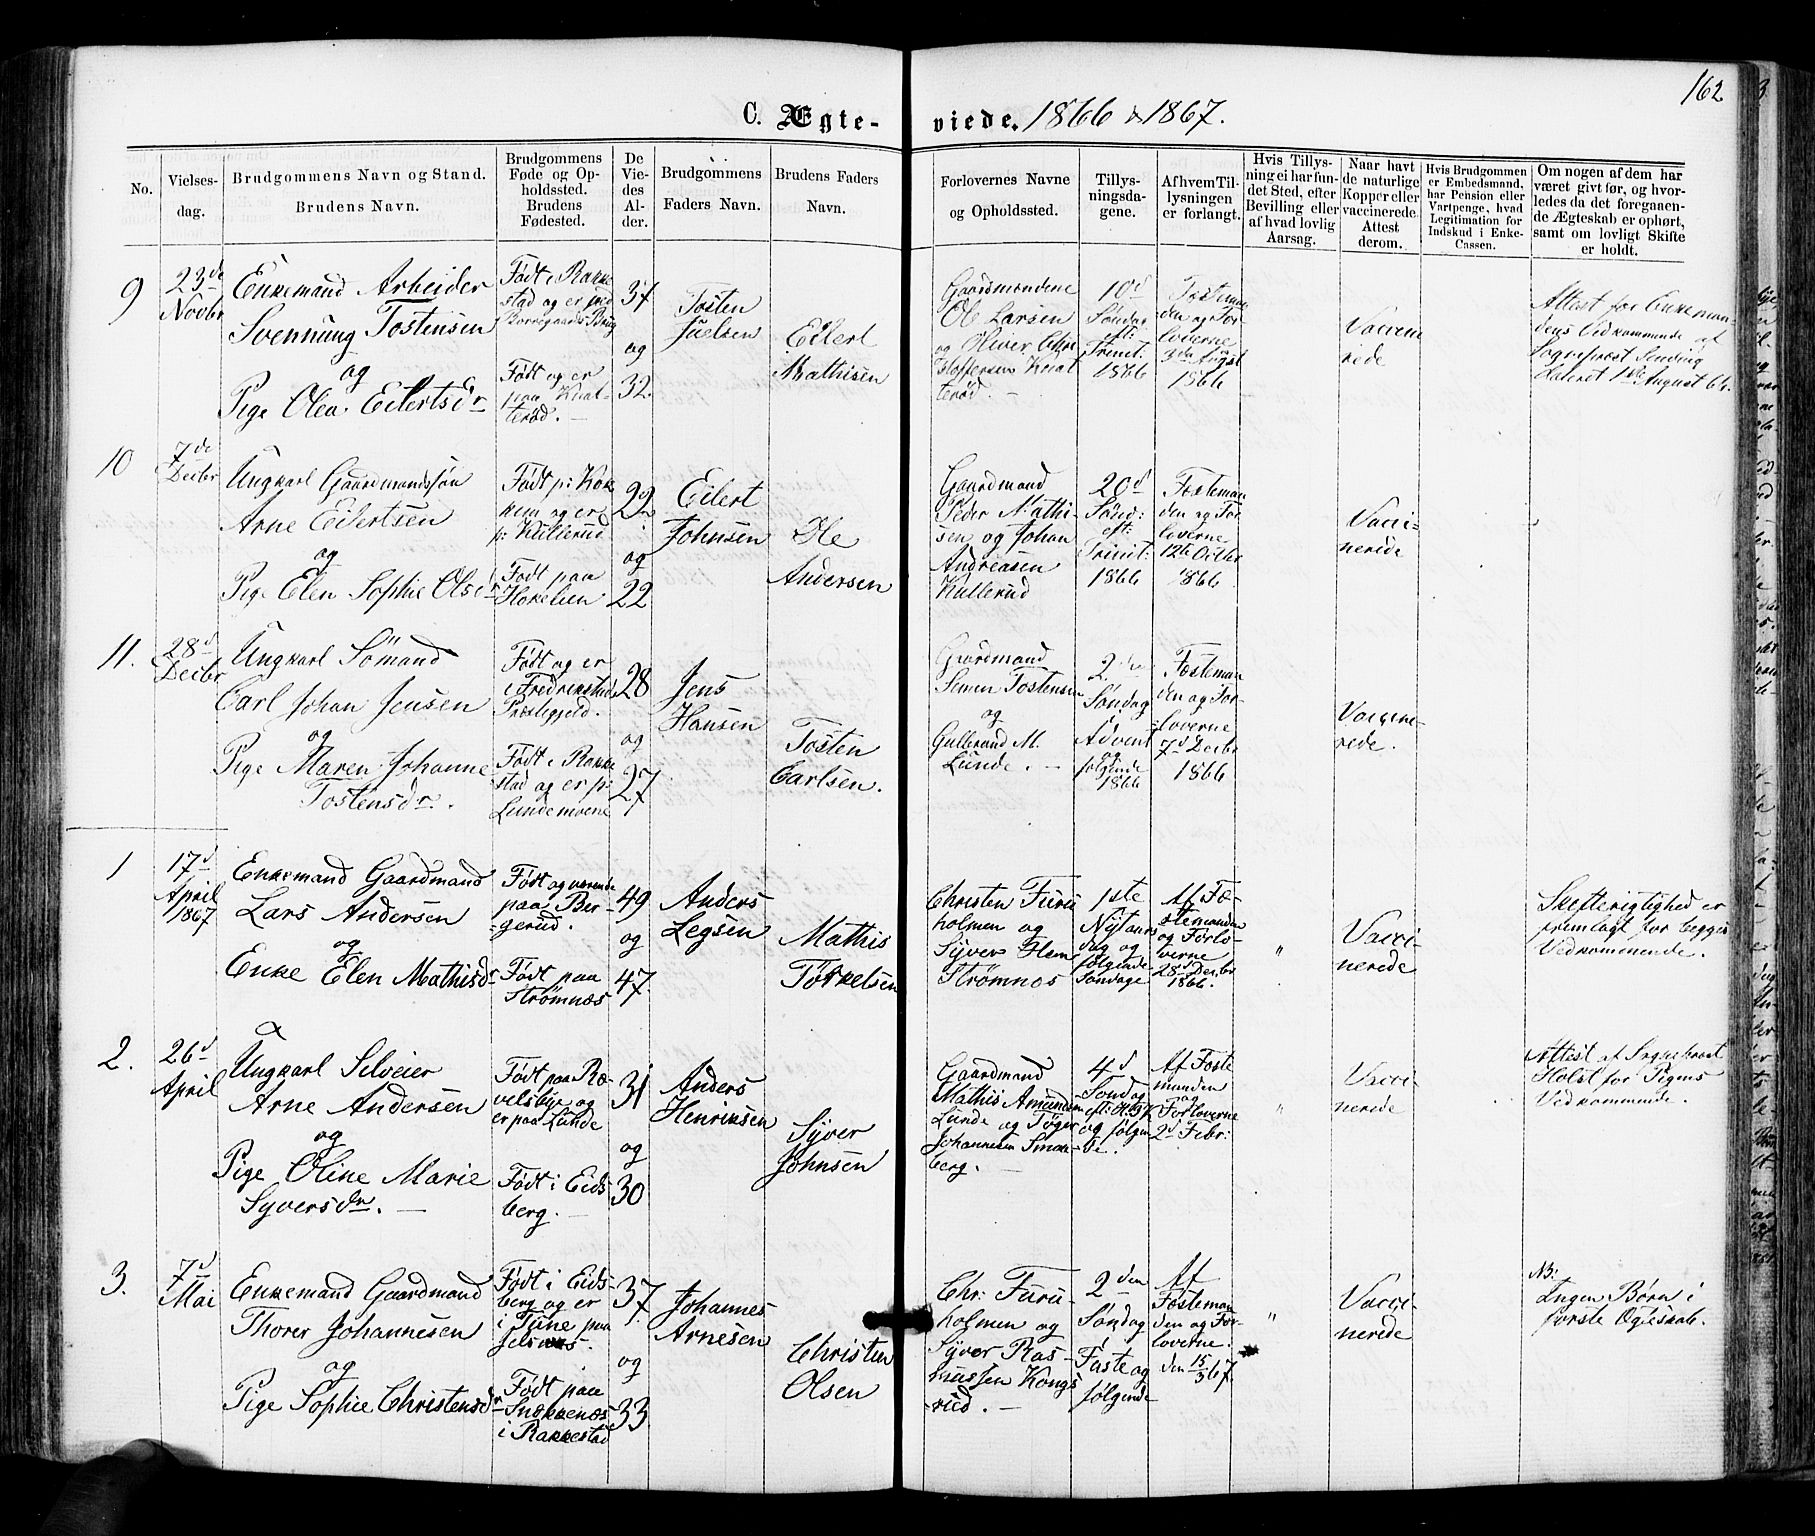 162
C. Ægteviede. 1866 & 1867.
No.
Vielsesdag.
Brudgommens Navn og Stand.
Brudens Navn.
Brudgommens Føde og Opholdssted.
Brudens Fødested.
De Viedes Alder.
Brudgommens Faders Navn.
Brudens Faders Navn.
Forlovernes Navne og Opholdssted.
Tillysningsdagene.
Af hvem Tillysningen er forlangt.
Hvis Tillysning ei har fundet Sted, efter Bevilling eller af hvad lovlig Aarsag.
Naar havt de naturlige Kopper eller vaccinerede. Attest derom.
Hvis Brudgommen er Embedsmand, har Pension eller Vartpenge, hvad Legitimation for Indskud i Enke-Cassen.
Om nogen af dem har været givt før, og hvorledes da det foregaaende Ægteskab er ophørt, samt om lovligt Skifte er holdt.
9
23de
Novbr
Enkemand Arbeider
Svennung Tostensen
og
Pige Olea Eilertsdr
Født i Rakke
stad og er ved
Borregaards Brug
Født og er
paa Knat
terød. —
37
og
32
Tosten
Juelsen
Eilert
Mathisen
Gaardmændene
Ole Larsen
og Oliver Chri
stoffersen Knat
terød. —
10d
Søndag
eft:
Trinit:
1866
Fæsteman
den og For
loverne
3de August
1866
Vaccine
rede
Attest for Enkeman
dens Vedkommende af
Sogneprest
dateret 1ste August 66.
10
7de
Decbr
Ungkarl Gaardmandssøn
Arne Eilertsen
og
Pige Elen Sophie Olsdr
Født p: Kok
kem og er
p: Kullerud
Født paa
Hokelien
22
og
22
Eilert
Johnsen
Ole
Andersen
Gaardmand
Peder Mathi
sen og Johan
Andreasen
Kullerud
20d
Sønd:
eft:
Trinit:
1866
Fæsteman
den og For
loverne
12te Octbr
1866
Vacci-
nerede
11.
28d
Decbr
Ungkarl Sömand
Carl Johan Jensen
og
Pige Maren Johanne
Tostensdr.
Født og er
i Fredrikstads
Præstegjeld.
Født i Rakke
stad og er p:
Lundemoene
28
og
27
Jens
Hansen
Tosten
Carlsen.
Gaardmand
Simen Tostensen
og
Gulbrand M.
Lunde. —
2den
Søndag
Advent
og
følgende
1866
Fæsteman
den og For-
loverne
7d Decbr
1866
Vaccine-
rede.
1
17d
April
1867
Enkemand Gaardmand
Lars Andersen
og
Enke Elen Mathisdr
Født og værende
paa Ber-
gerud.
Født paa
Strømnæs
49
og
47.
Anders
Legsen
Mathis
Torkelsen
Christen Furu
holmen og
Syver Hem
Strømnos
1ste
Nytaars
dag og
følgende
Søndage
Af Fæ-
stemanden
og Forlo-
verne
28d Decbr
1866.
"
Vacci-
nerede
Skifterigtighed er
fremlagt for begges
Vedkommende.
2.
26d
April
Ungkarl Selveier
Arne Andersen
og
Pige Oline Marie
Syversdr. —
Født paa Ræ
velsbye og
er paa Lunde
Født i Eids
berg. —
31
og
30
Anders
Henriksen
Syver
Johnsen
Gaardmand
Mathis Amundsen
Lunde og Tøger
Johannesen Smaa
berg. —
4d
Søndag
eft: H3K
og følgen
de.
Af Fæste
manden
og
Forloverne
2d Febr:
"
Vacci-
nerede
Attest af Sognepræst
Holst for Pigens
Vedkommende.
3.
7d
Mai
Enkemand Gaardmand
Thorer Johannesen
og
Pige Sophie Christensdr
Født i Eids
berg og er
i Tune paa
Jelsnæs.
Født paa
Snækkenæs
i Rakkestad
37
og
33
Johannes
Arnesen
Christen
Olsen
Chr: Furu-
holmen og
Syver Ras-
mussen Kongs
rud. —
2den
Søndag
i
Faste og
følgende
Af
Fæsteman
den og For-
loverne.
den 15/3 67.
"
Vacci-
nerede
NB:
Ingen Børn i
første Ægteskab.